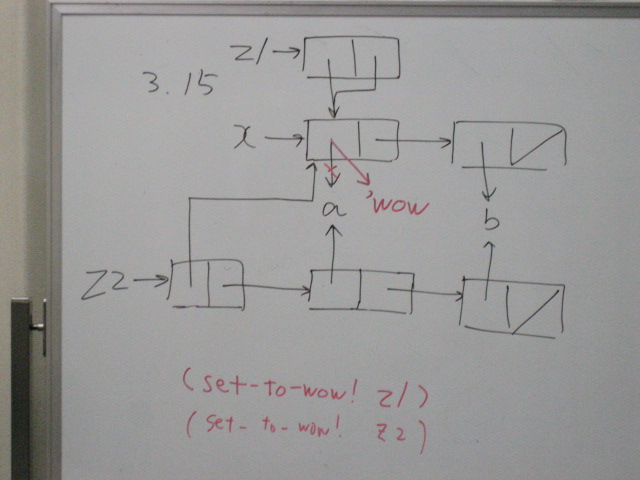 z1
3.15
x
a
'wow
b
z2
(set-to-wow! z1)
(set-to-wow! z2)